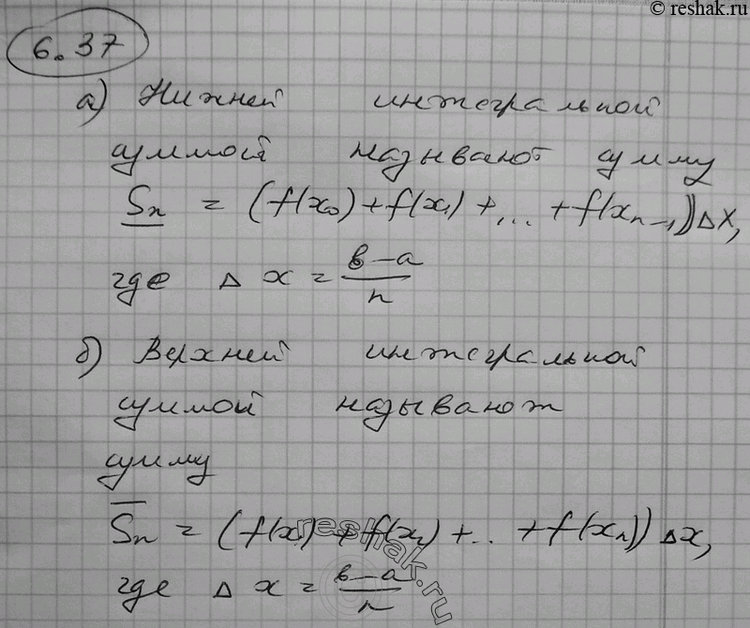 © reshak.ru
6.37
а) Нижней интегральной
суммой называют сумму
Sn = (f(x₀) + f(x₁) + ... + f(xn-1))Δx,
где Δx = в-а/n
б) Верхней интегральной
суммой называют
сумму
S̅n = (f(x₁) + f(x₂) + .. + f(xn))Δx,
где Δx = в-а/n
reshak.ru